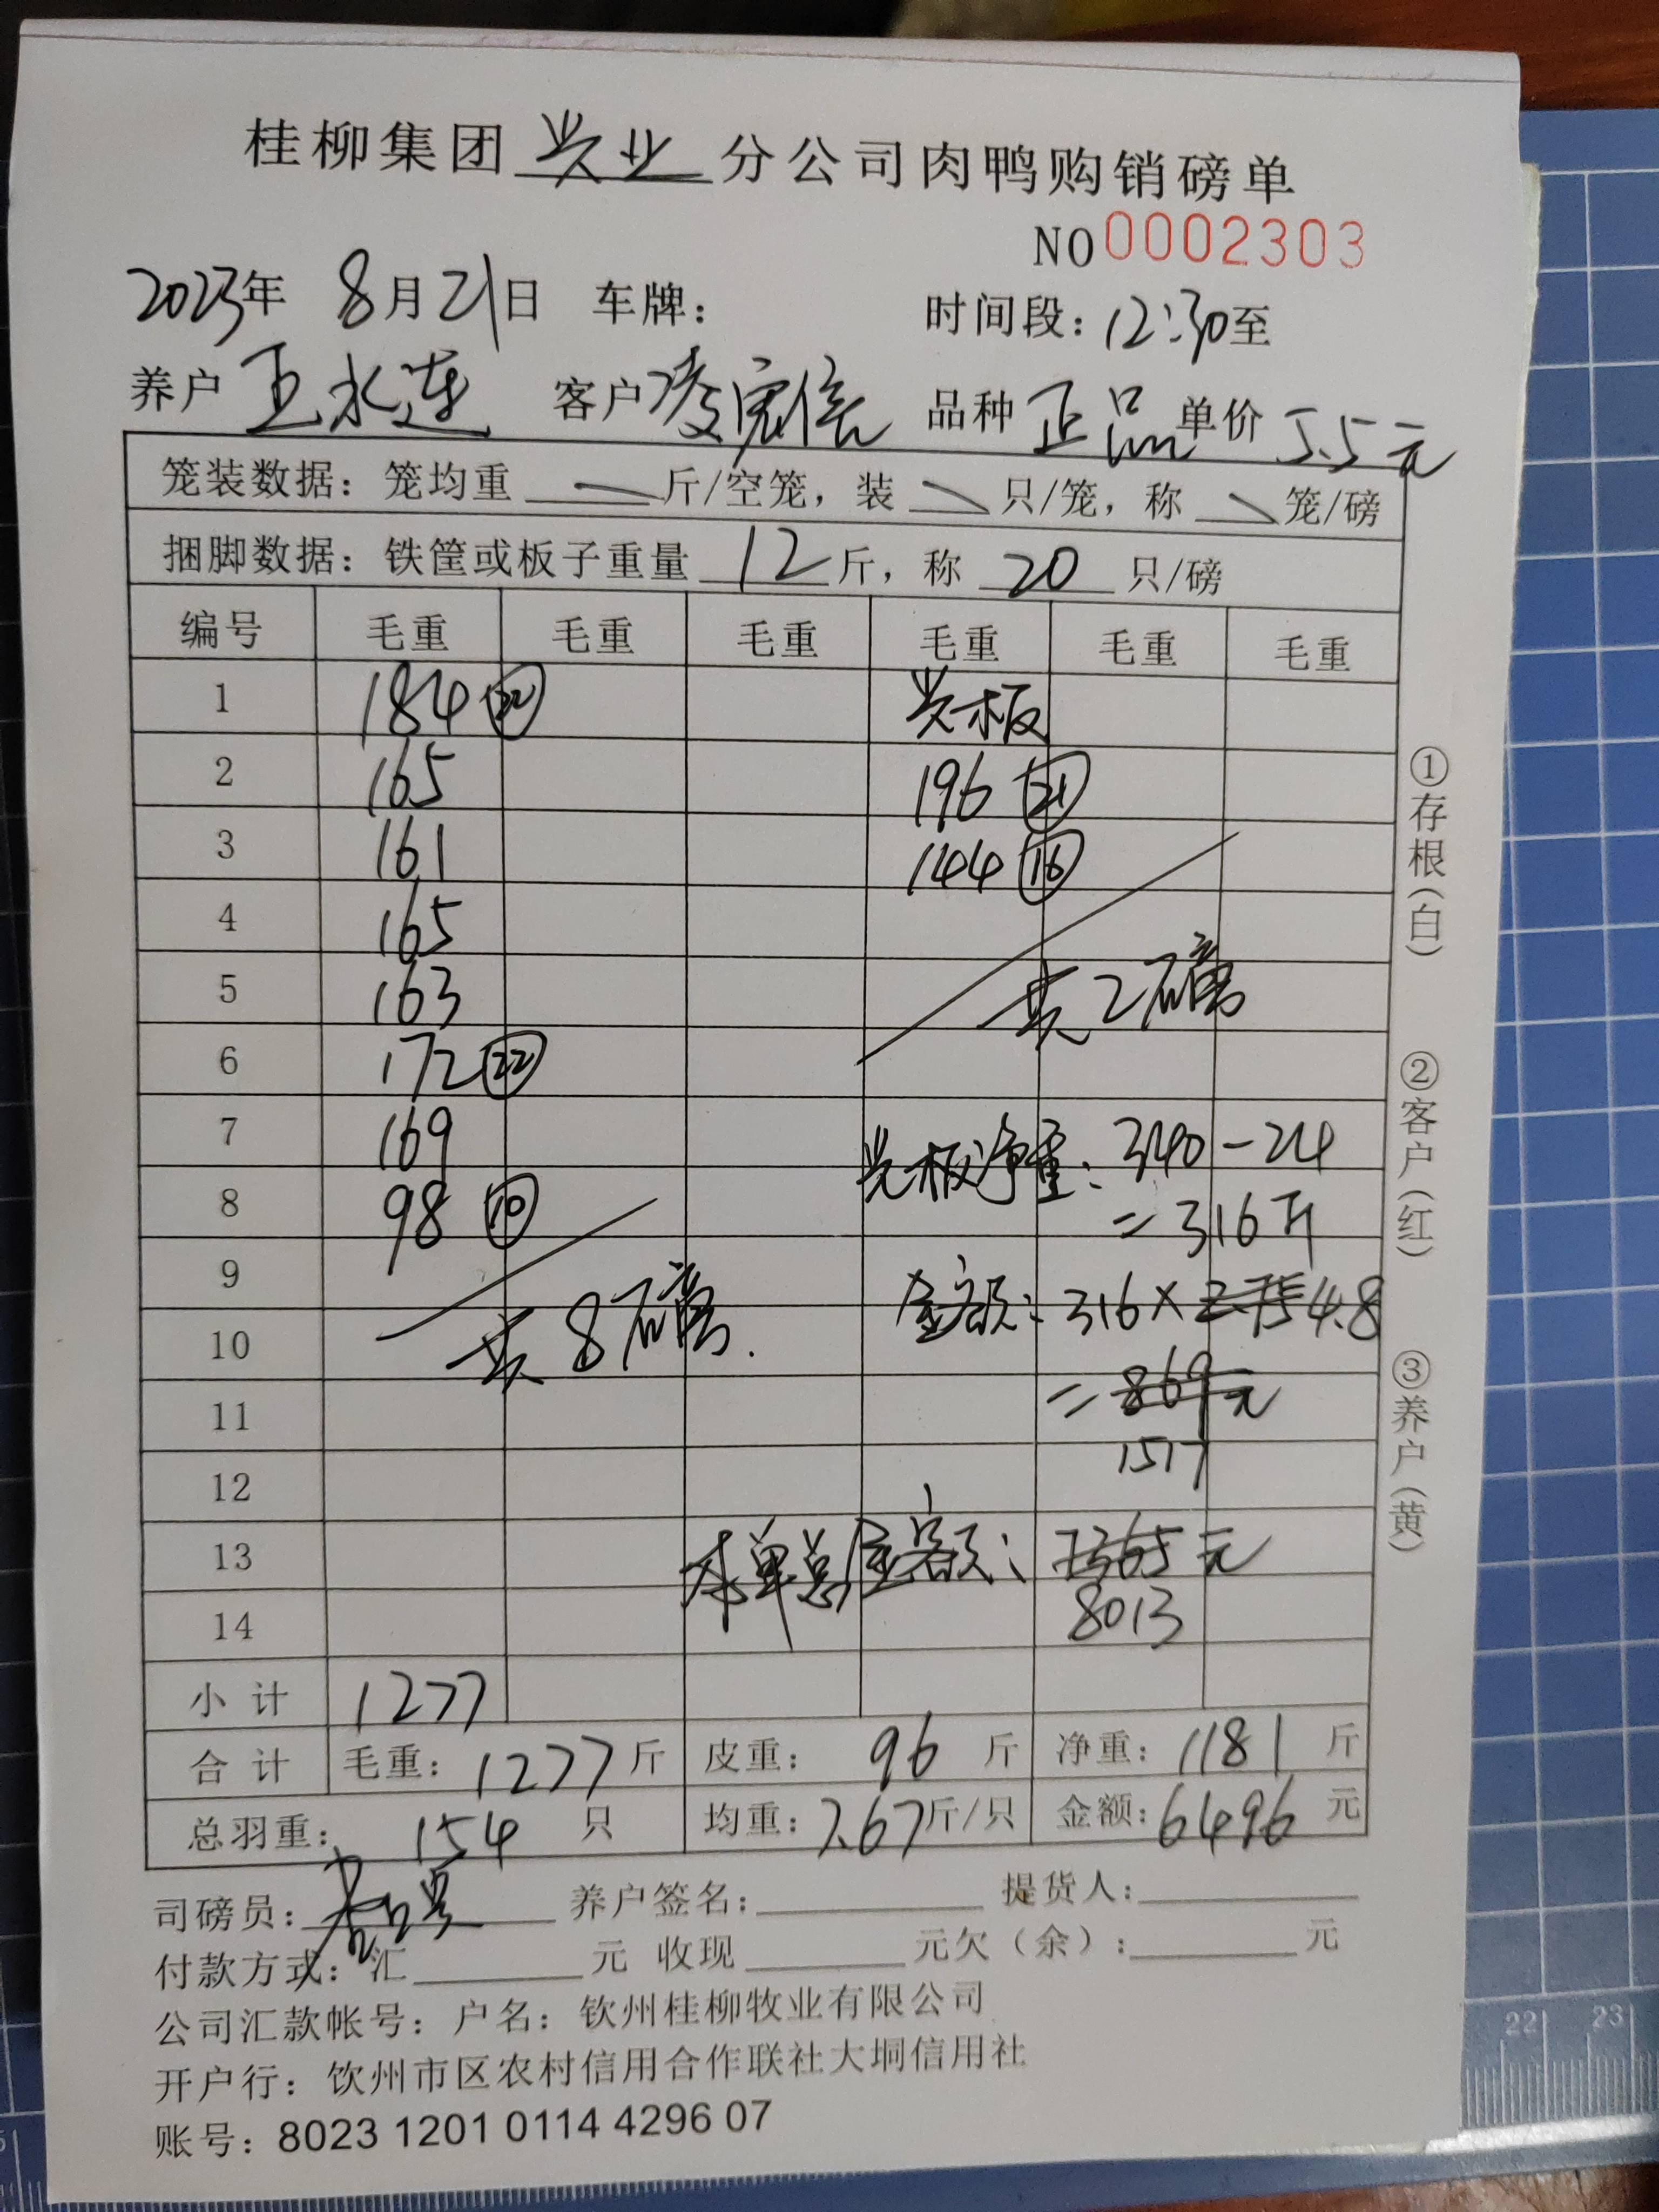 桂柳集团兴业分公司肉鸭购销磅单
NO 0002303
2023年 8月21日 车牌： 时间段：12:30至
养户 王水连 客户 凌宪信 品种 正品 单价 5.5元
笼装数据：笼均重 — 斤/空笼，装 \ 只/笼，称 \ 笼/磅
捆脚数据：铁筐或板子重量 12 斤，称 20 只/磅
编号 毛重 毛重 毛重 毛重 毛重 毛重
1 184 ㉒ 光板
2 165 196 ㉑
3 161 144 ⑯
4 165
5 163 共2磅
6 172 ㉒
7 169 光板净重：340-24
8 98 ⑩ =316斤
9 金额：316×2.75 4.8
10 共8磅.
11 =869元
12 1517
13 本单总金额：7365元
14 8013
小计 1277
合计 毛重：1277斤 皮重：96斤 净重：1181斤
总羽重：154只 均重：7.67斤/只 金额：6496元
司磅员： 养户签名： 提货人：
付款方式：汇 元 收现 元欠（余）： 元
公司汇款帐号：户名：钦州桂柳牧业有限公司
开户行：饮州市区农村信用合作联社大垌信用社
账号：8023 1201 0114 4296 07
①存根（白）
②客户（红）
③养户（黄）
22 23